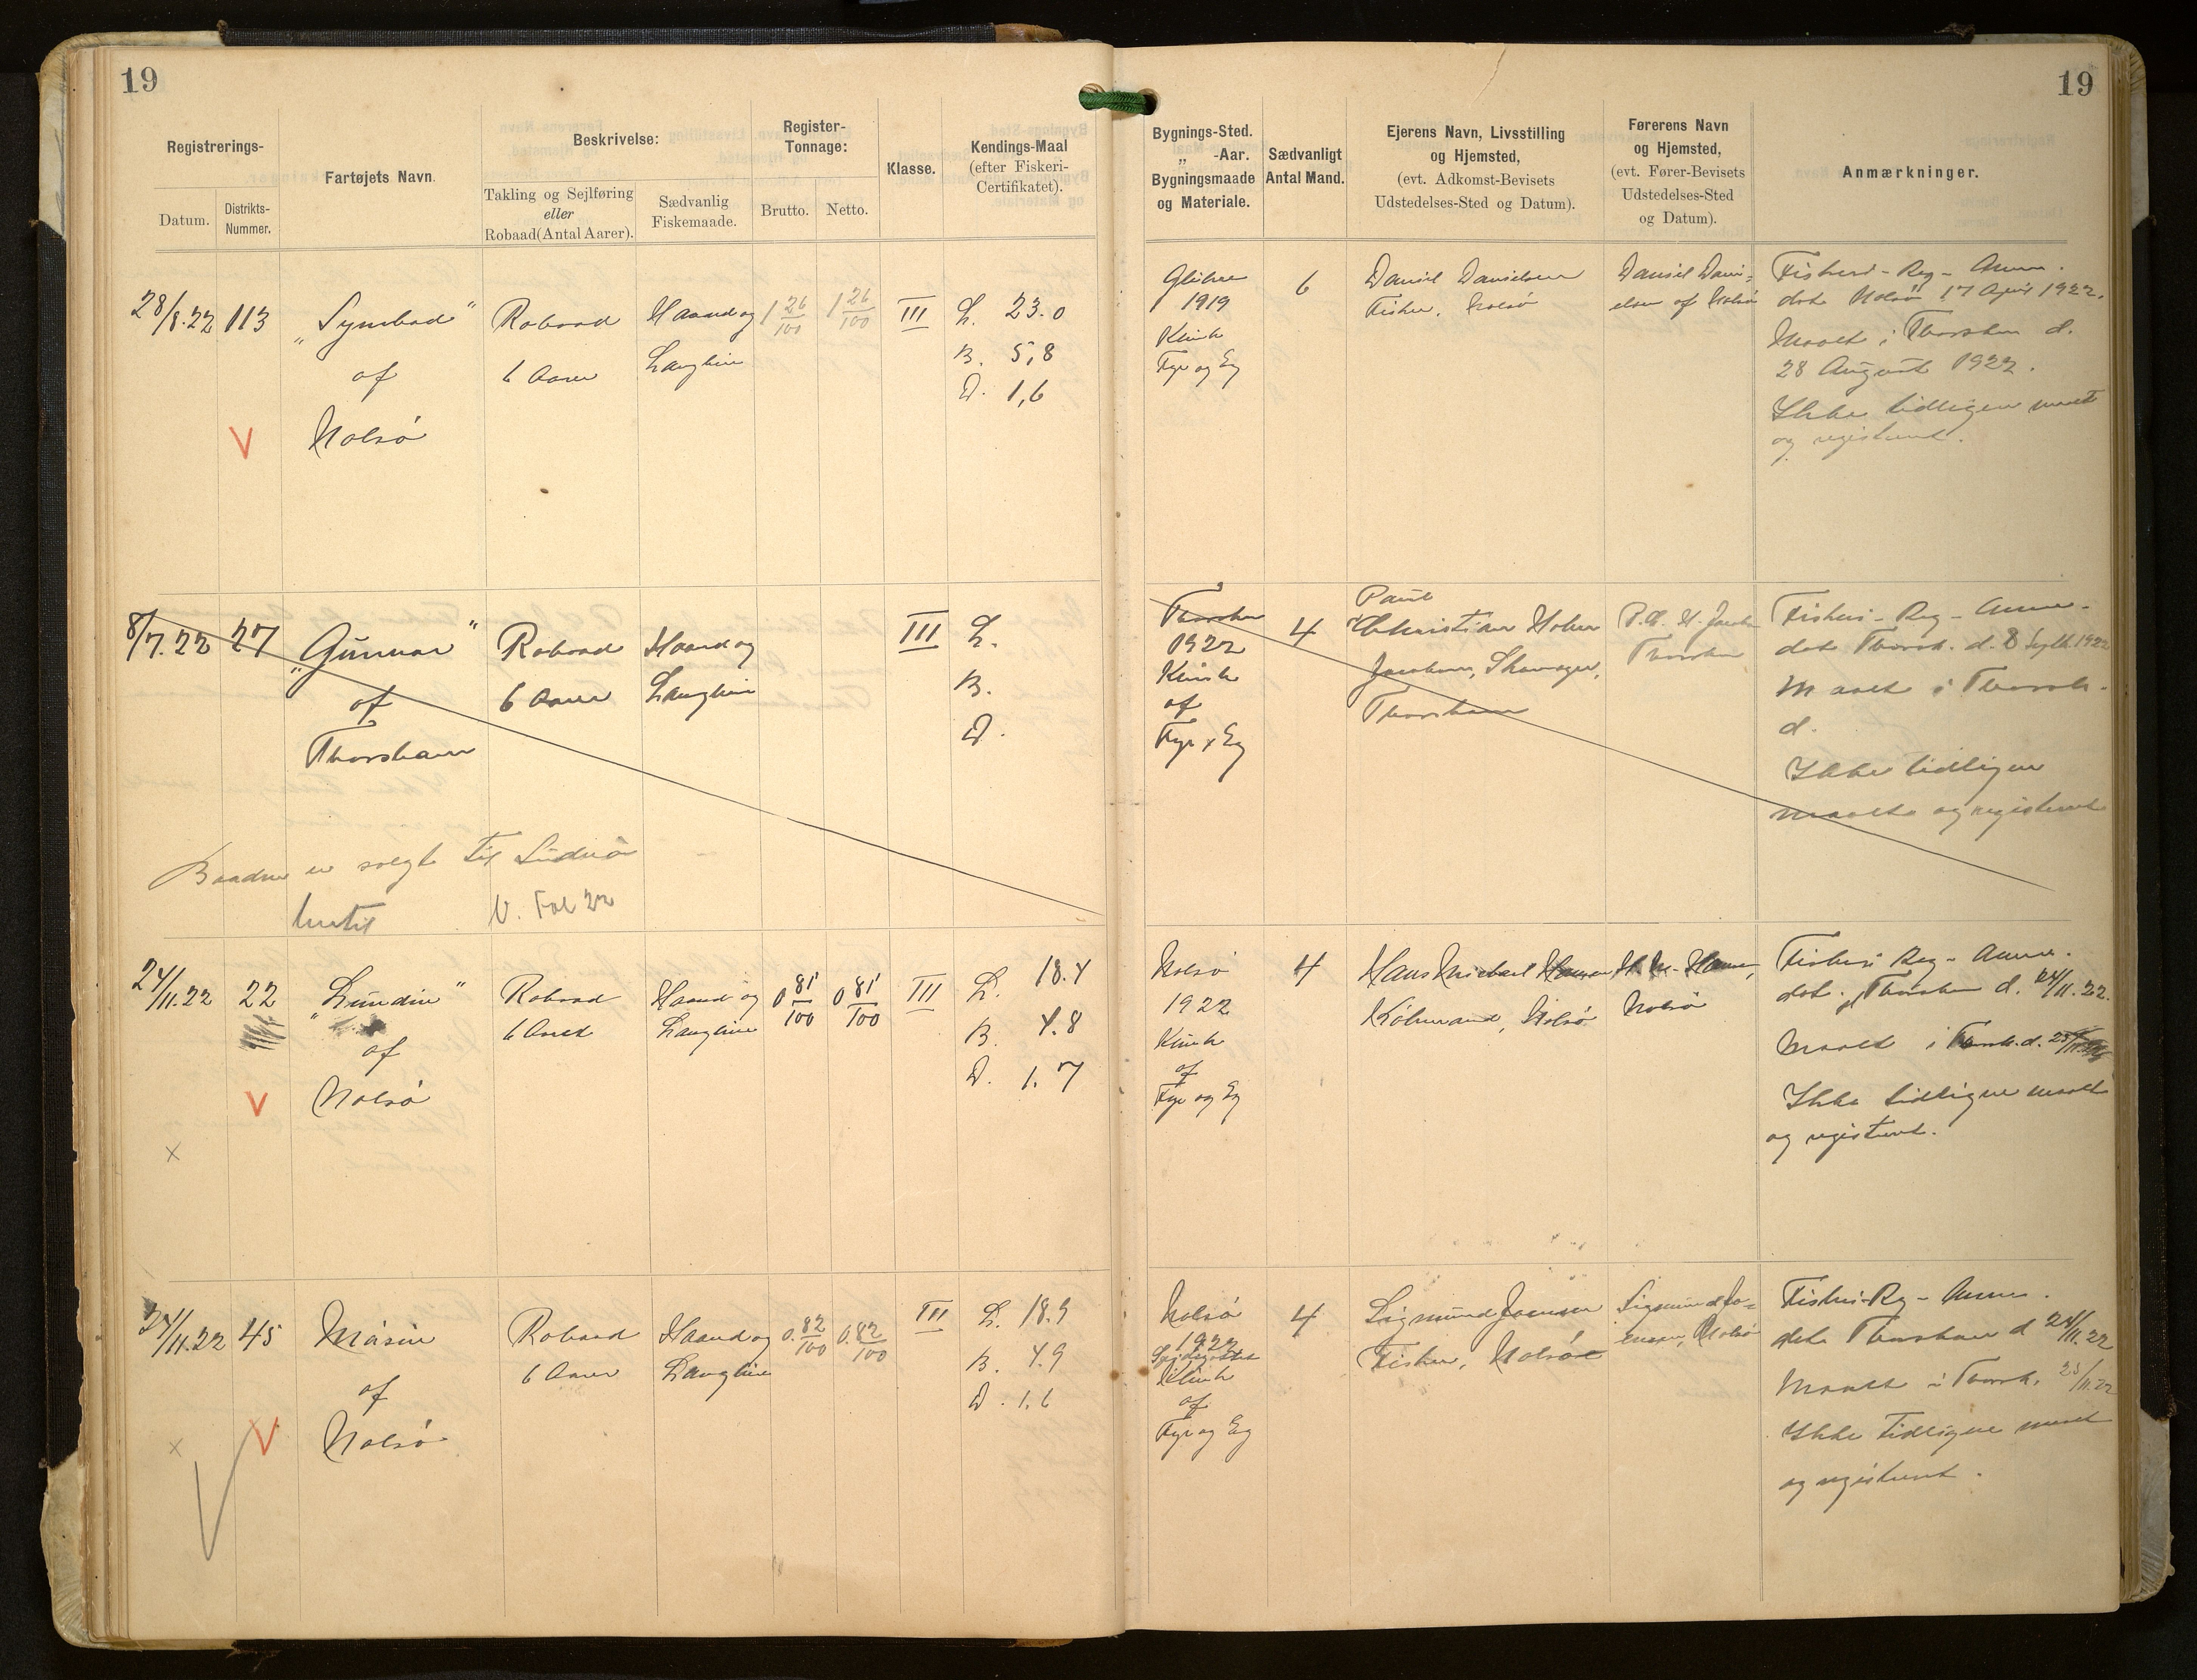 19
19
Registrerings-
Datum.
Distrikts-
Nummer.
Fartøjets Navn.
Beskrivelse:
Takling og Sejlføring
eller
Robaad (Antal Aarer).
Sædvanlig
Fiskemaade.
Register-
Tonnage:
Brutto.
Netto.
Klasse.
Kendings-Maal
(efter Fiskeri-
Certifikatet).
Bygnings-Sted.
„ -Aar.
Bygningsmaade
og Materiale.
Sædvanligt
Antal Mand.
Ejerens Navn, Livsstilling
og Hjemsted,
(evt. Adkomst-Bevisets
Udstedelses-Sted og Datum).
Førerens Navn
og Hjemsted,
(evt. Fører-Bevisets
Udstedelses-Sted
og Datum).
Anmærkninger.
28/8.22
113
„Symbad"
af
Nolsö
V
Robaad
6 Aarer
Haand og
Langline
1 26/100
1 26/100
III
L. 23.0
B. 5,8
D. 1,6
1919
Klink
Fyr og Eg
6
Daniel Danielsen
Fisker, Nolsö
Daniel Dani=
elsen af Nolsö
Fiskeri-Reg-Anm.
dat. Nolsö 17 April 1922.
Maalt i Thorshn d.
28 August 1922.
Ikke tidligere maalt
og registeret.
8/7.22
27
„Gunnar"
af
Thorshavn
Robaad
6 Aarer
Haand og
Langline
III
L.
B.
D.
Thorshn
1922
Klink
af
Fyr x Eg
4
Paul
Christian Holm
Jacobsen, Skomager,
Thorshavn
P.C. H. Jacobs
Thorshn
Fiskeri-Reg-Anm-
dat Thorsh. d. 8 1922
Maalt i Thorsh.
d.
Ikke tidligere
maalt og registeret
Baaden er solgt til
V. Fol 22
24/11.22
22
„Lundin"
af
Nolsö
V
x
Robaad
6 Aarer
Haand og
Langline
0 81/100
0 81/100
III
L. 18.4
B. 4.8
D. 1.7
Nolsö
1922
Klink
af
Fyr og Eg
4
Hans Michael Hansen
Købmand, Nolsö
H. M. Hansen,
Nolsö
Fiskeri Reg-Anm.
dat. Thorshn d. 24/11.22.
Maalt i Thorsh. d.
Ikke tidligere maalt
og registeret.
24/11.22
45
Másin
af
Nolsö
V
x
Robaad
6 Aarer
Haand og
Langline
0. 82/100
0. 82/100
III
L. 18.9
B. 4.9
D. 1.6
Nolsö
1922
Klink
af
Fyr og Eg
4
Sigmund Joensen
Fisker, Nolsö
Sigmund Jo=
ensen, Nolsö
Fiskeri-Rg-Anm.
dat Thorshavn d 24/11.22
Maalt i Thorsh. 25/11.22
Ikke tidligere maalt
og registeret.